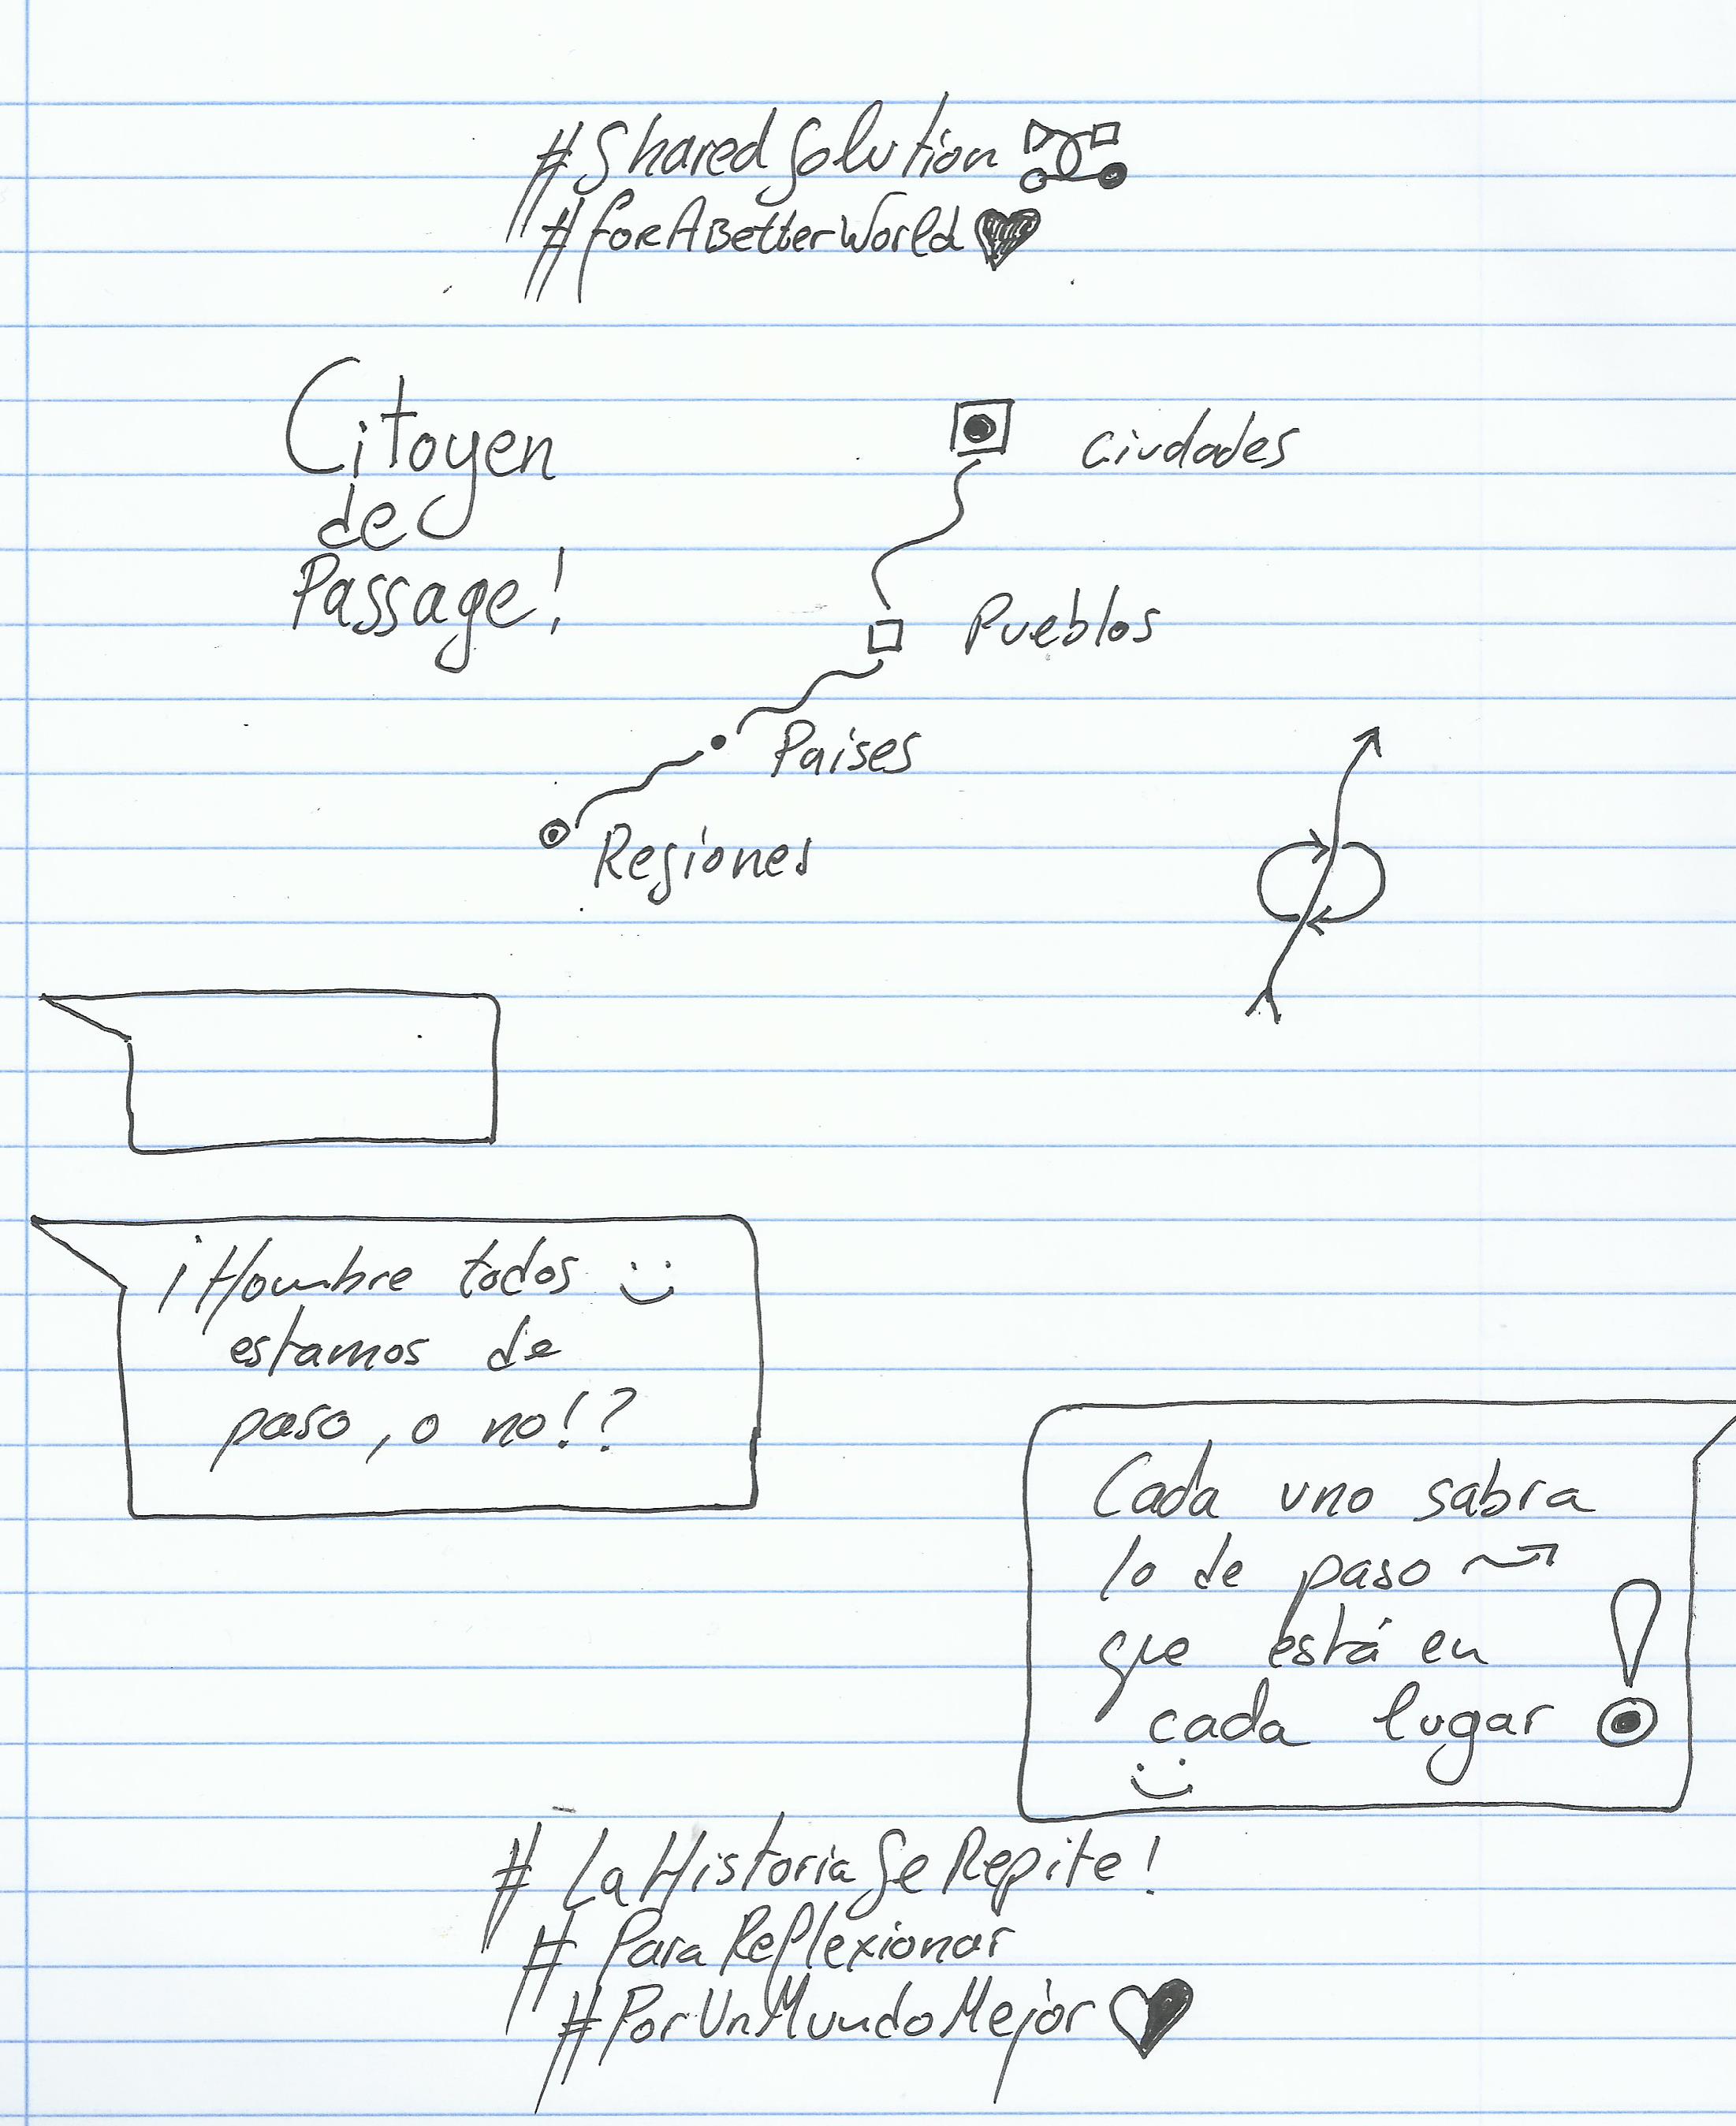 #SharedSolution
#forABetterWorld
Citoyen
de
Passage!
Ciudades
Pueblos
Paises
Regiones
¡Hombre todos
estamos de
paso, o no!?
Cada uno sabra
lo de paso
que está en
cada lugar !
#LaHistoriaSeRepite!
#ParaReflexionar
#PorUnMundoMejor